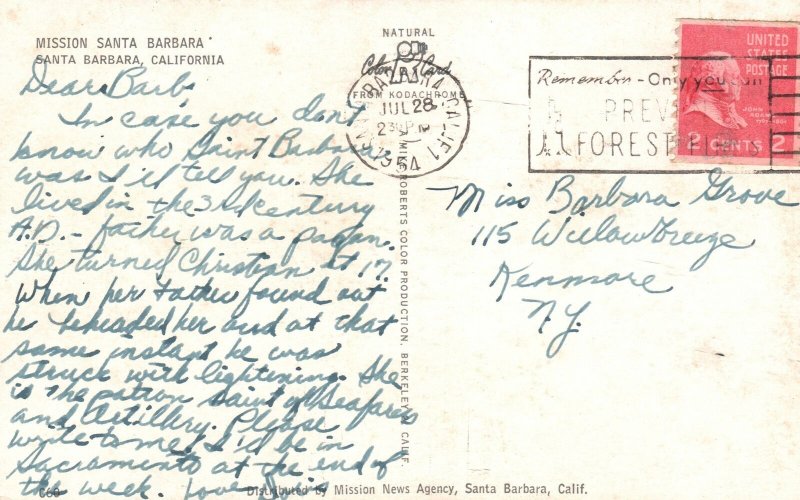 MISSION SANTA BARBARA
SANTA BARBARA, CALIFORNIA
Dear Barb,
In case you don't
know who Saint Barbara
was I'll tell you. She
lived in the 3rd century
A.D. - father was a pagan.
She turned Christian at 17.
When her father found out
he beheaded her and at that
same instant he was
struck with lightening. She
is the patron saint of Seafarers
and Artillery. Please
write to me, I'd be in
Sacramento at the end of
the week. Love
C60
NATURAL
Color Card
FROM KODACHROME
SANTA BARBARA CALIF.
JUL 28
2 30 PM
1954
A MIKE ROBERTS COLOR PRODUCTION, BERKELEY, CALIF.
Remember - Only you can
PREVENT
FOREST FIRES
UNITED
STATES
POSTAGE
JOHN
ADAMS
2 CENTS 2
Miss Barbara Grove
115 Willowbreeze
Kenmore
N.Y.
Distributed by Mission News Agency, Santa Barbara, Calif.